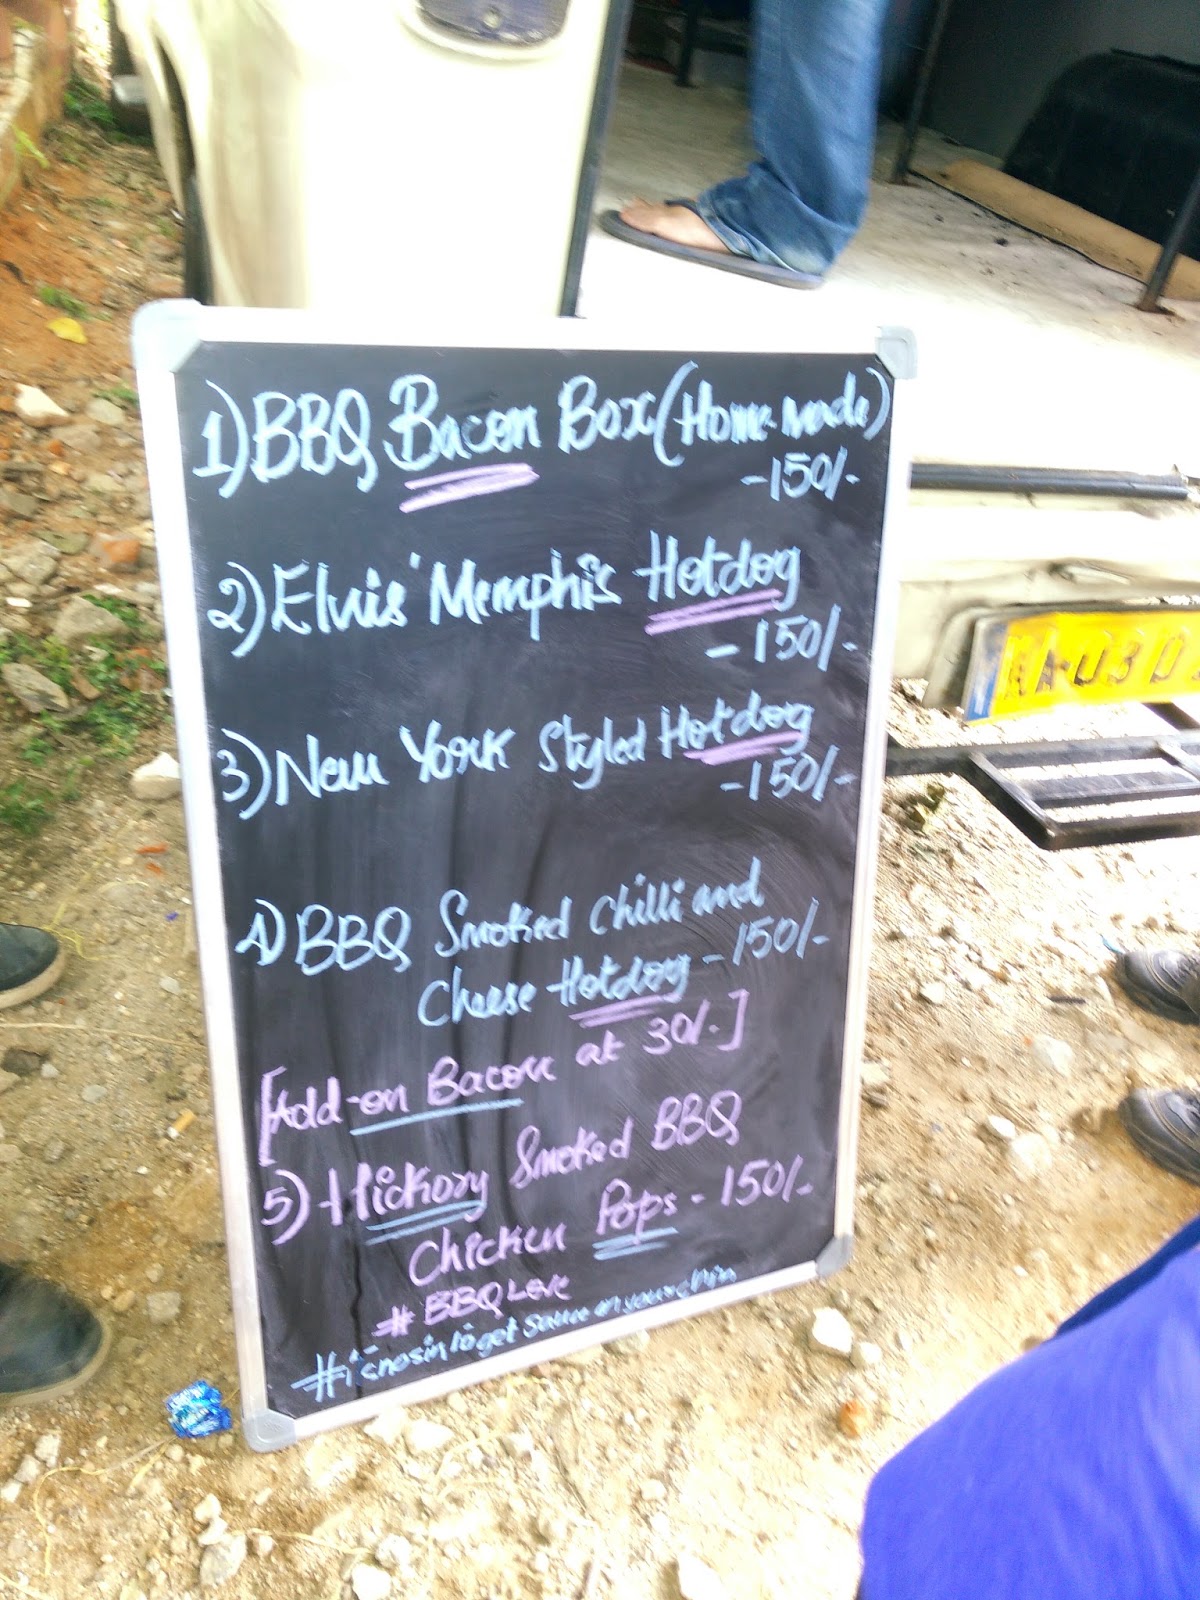 1) BBQ Bacon Box (Home made)
-150/-
2) Elvis' Memphis Hotdog
- 150/-
3) New York Styled Hotdog
-150/-
4) BBQ Smoked Chilli and
Cheese Hotdog - 150/-
[Add-on Bacon at 30/-]
5) Hickory Smoked BBQ
Chicken Pops - 150/-
# BBQ Love
#itsnosintogetsauceonyourchin
KA-03 D